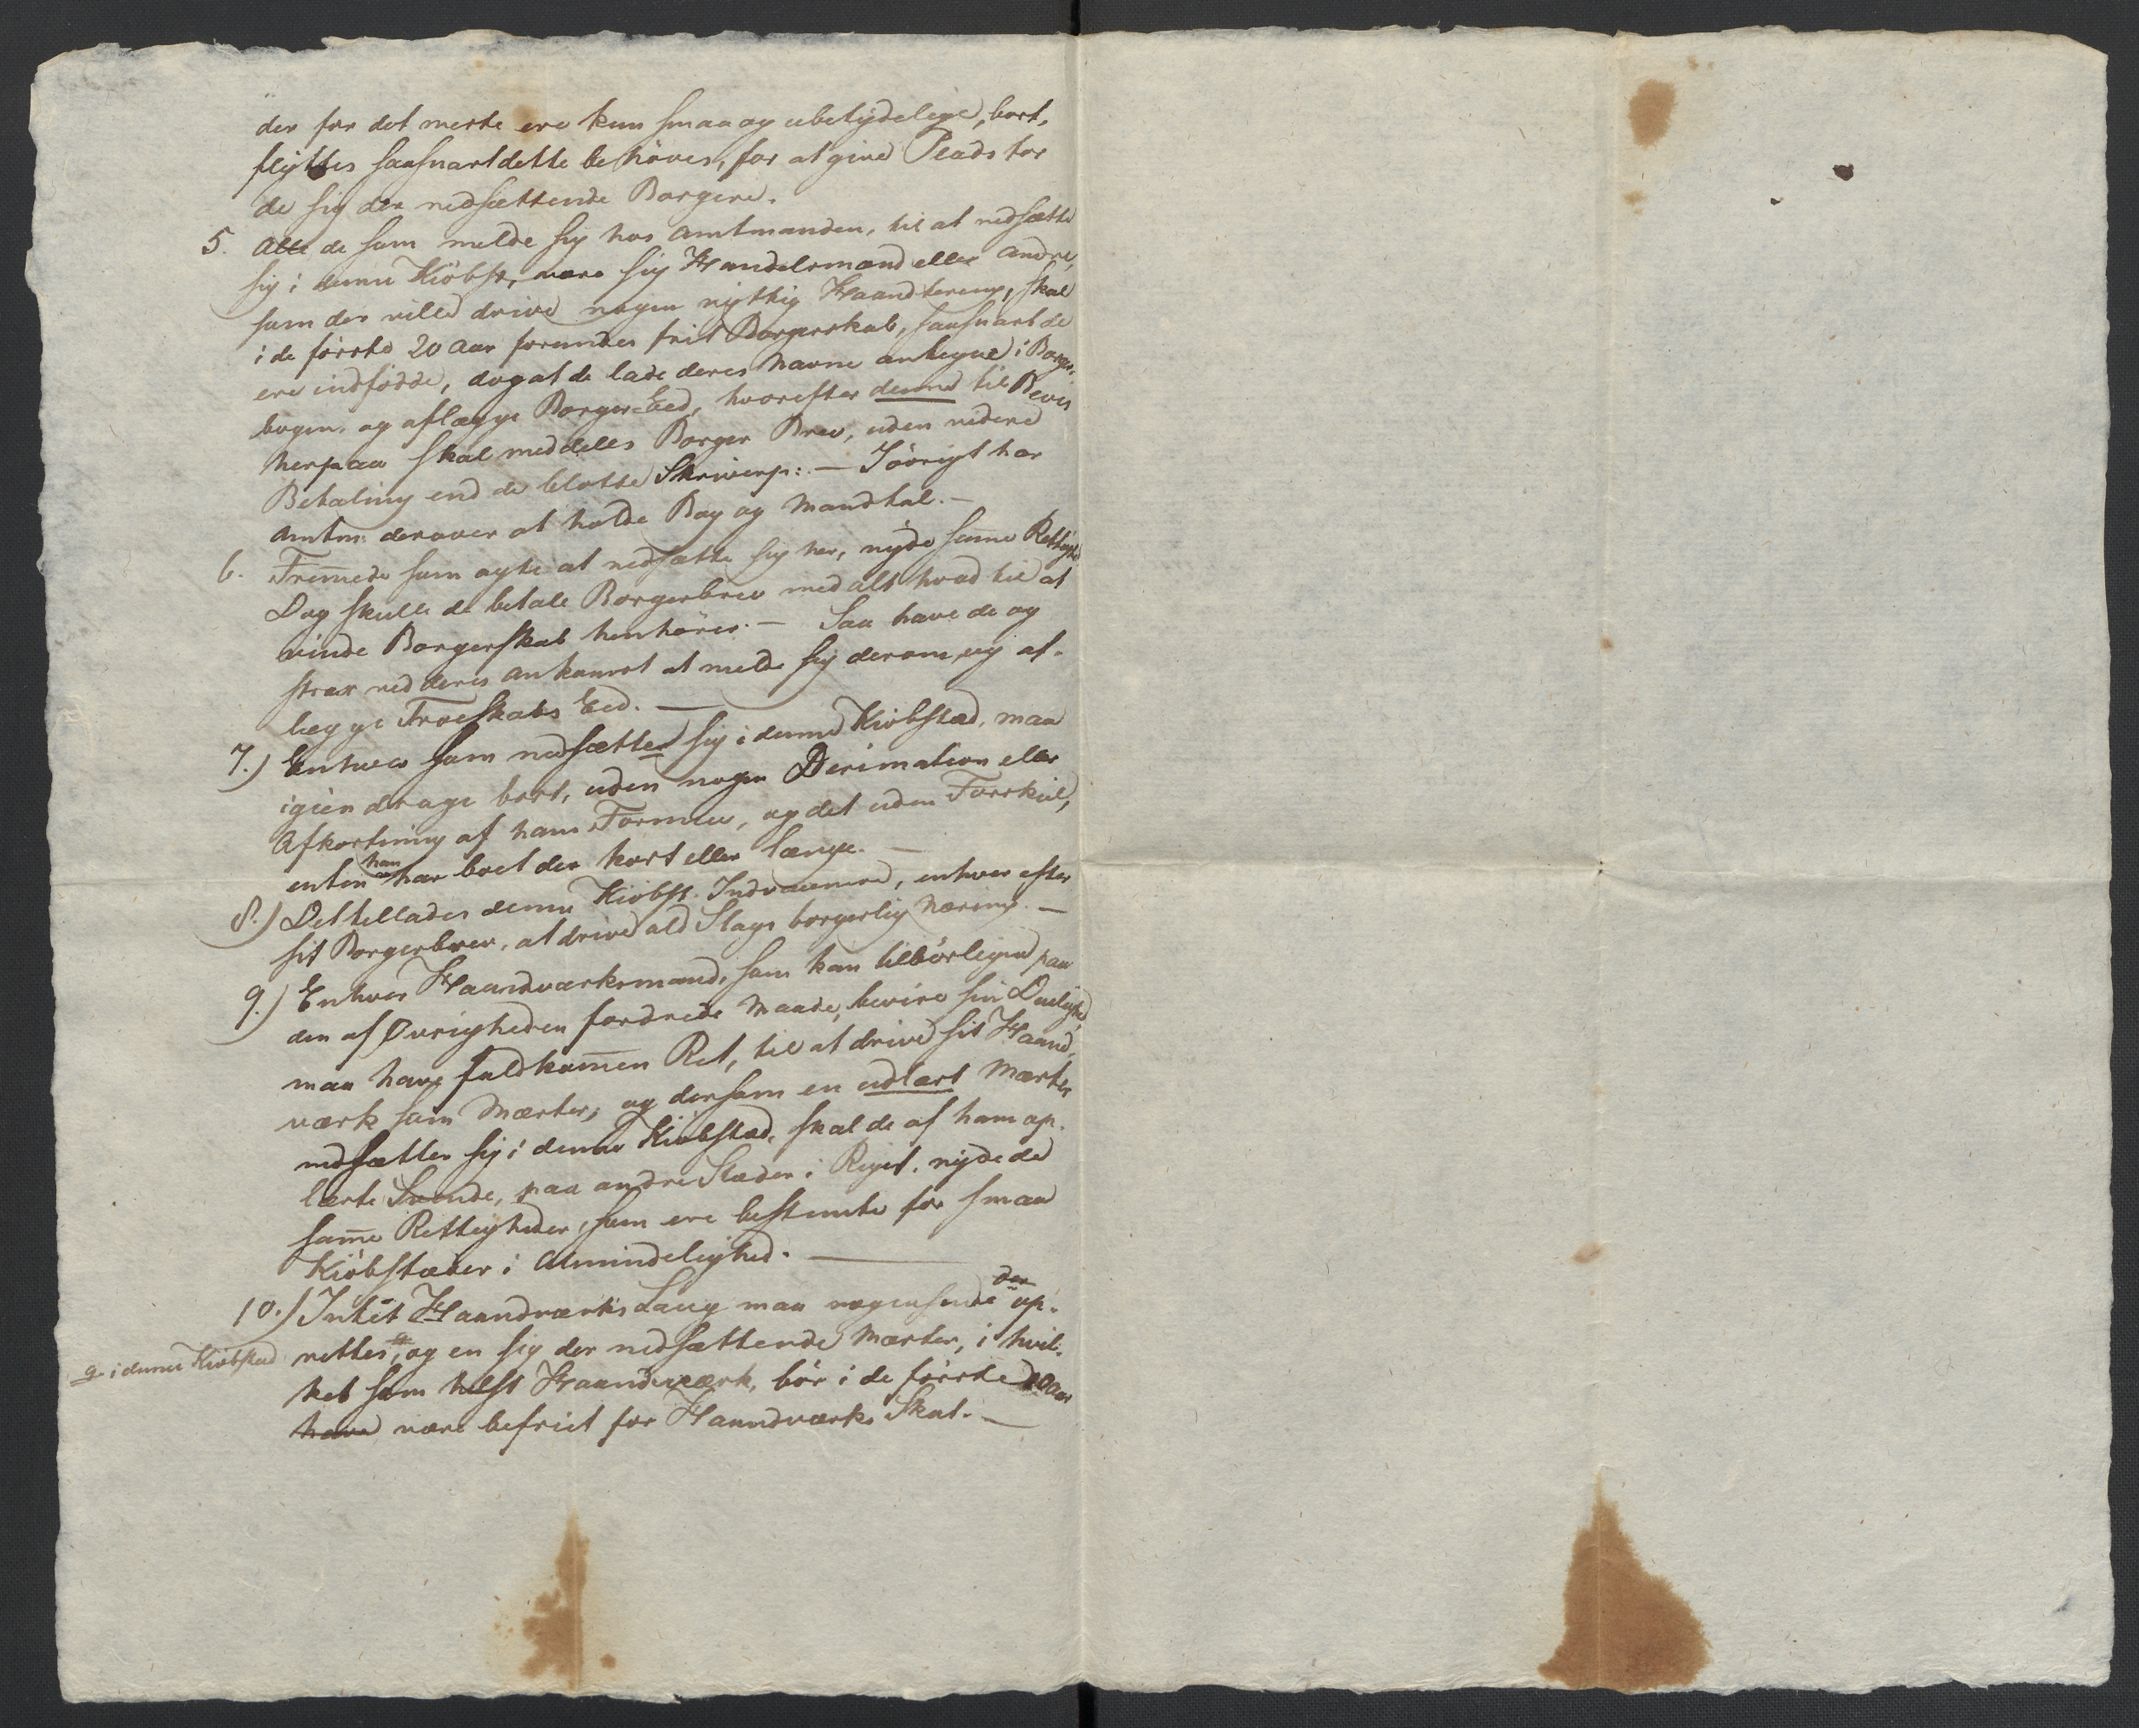 der for det meste ere kun smaa og ubetydelige, bort,
flyttes saasnart dette behöves, for at give Plads for
de sig der nedsættende Borgere.
5. Alle de som melde sig hos Amtmanden, til at nedsætte
sig i denne Kiöbst, være sig Handelsmænd eller andre,
som der ville drive nogen nyttig Haandtering, skal
i de förste 20 Aar forundes frit Borgerskab, saasnart de
ere indfödde, dog at de lade deres Navne antegne i Borger-
bogen, og aflægge Borger-Eed, hvorefter denne til Beviis
herpaa skal meddeles Borger Brev, uden videre
Betaling end de blotte Skriverp: — Iövrigt har
Amtm: derover at holde Bog og Mandtal. —
6. Fremede som agte at nedsætte sig her, nyde same Rettighed
Dog skulle de betale Borgerbrev med alt hvad til at
vinde Borgerskab henhörer. — Saa have de og
strax ved deres Ankomst at melde sig derom, og af-
lægge Troeskabs Eed. —
7.) Enhver som nedsætter sig i denne Kiöbstæd, maa
igien drage bort, uden nogen Decimation eller
Afkortning af hans Formue, og det uden Forskiel,
enten han har boet der kort eller længe. —
8.) Det tillades denne Kiöbst. Indvaanere, enhver efter
sit Borgerbrev, at drive ald Slags borgerlig Næring. —
9.) Enhver Haandværksmand, som kan tilbörligen paa
den af Øvrigheden fordrede Maade, bevise sin Duelighed,
maa have fuldkomen Ret, til at drive sit Haand,
værk som Mæster, og dersom en udlært Mæster
nedsætter sig i denne Kiöbstæd, skal de af ham op-
lærte Svende, paa andre Stæder i Riget, nyde de
same Rettigheder, som ere bestemte for smaa
Kiöbstæder i Almindelighed. —
10.) Intet Haandværks Laug maa nogensinde der op-
rettes, og en sig der nedsættende Mæster, i hvil-
g i denne Kiöbstæd
ket som helst Haandværk, bör i de förste 20 Aar
have være befriet for Haandværks Skat. —